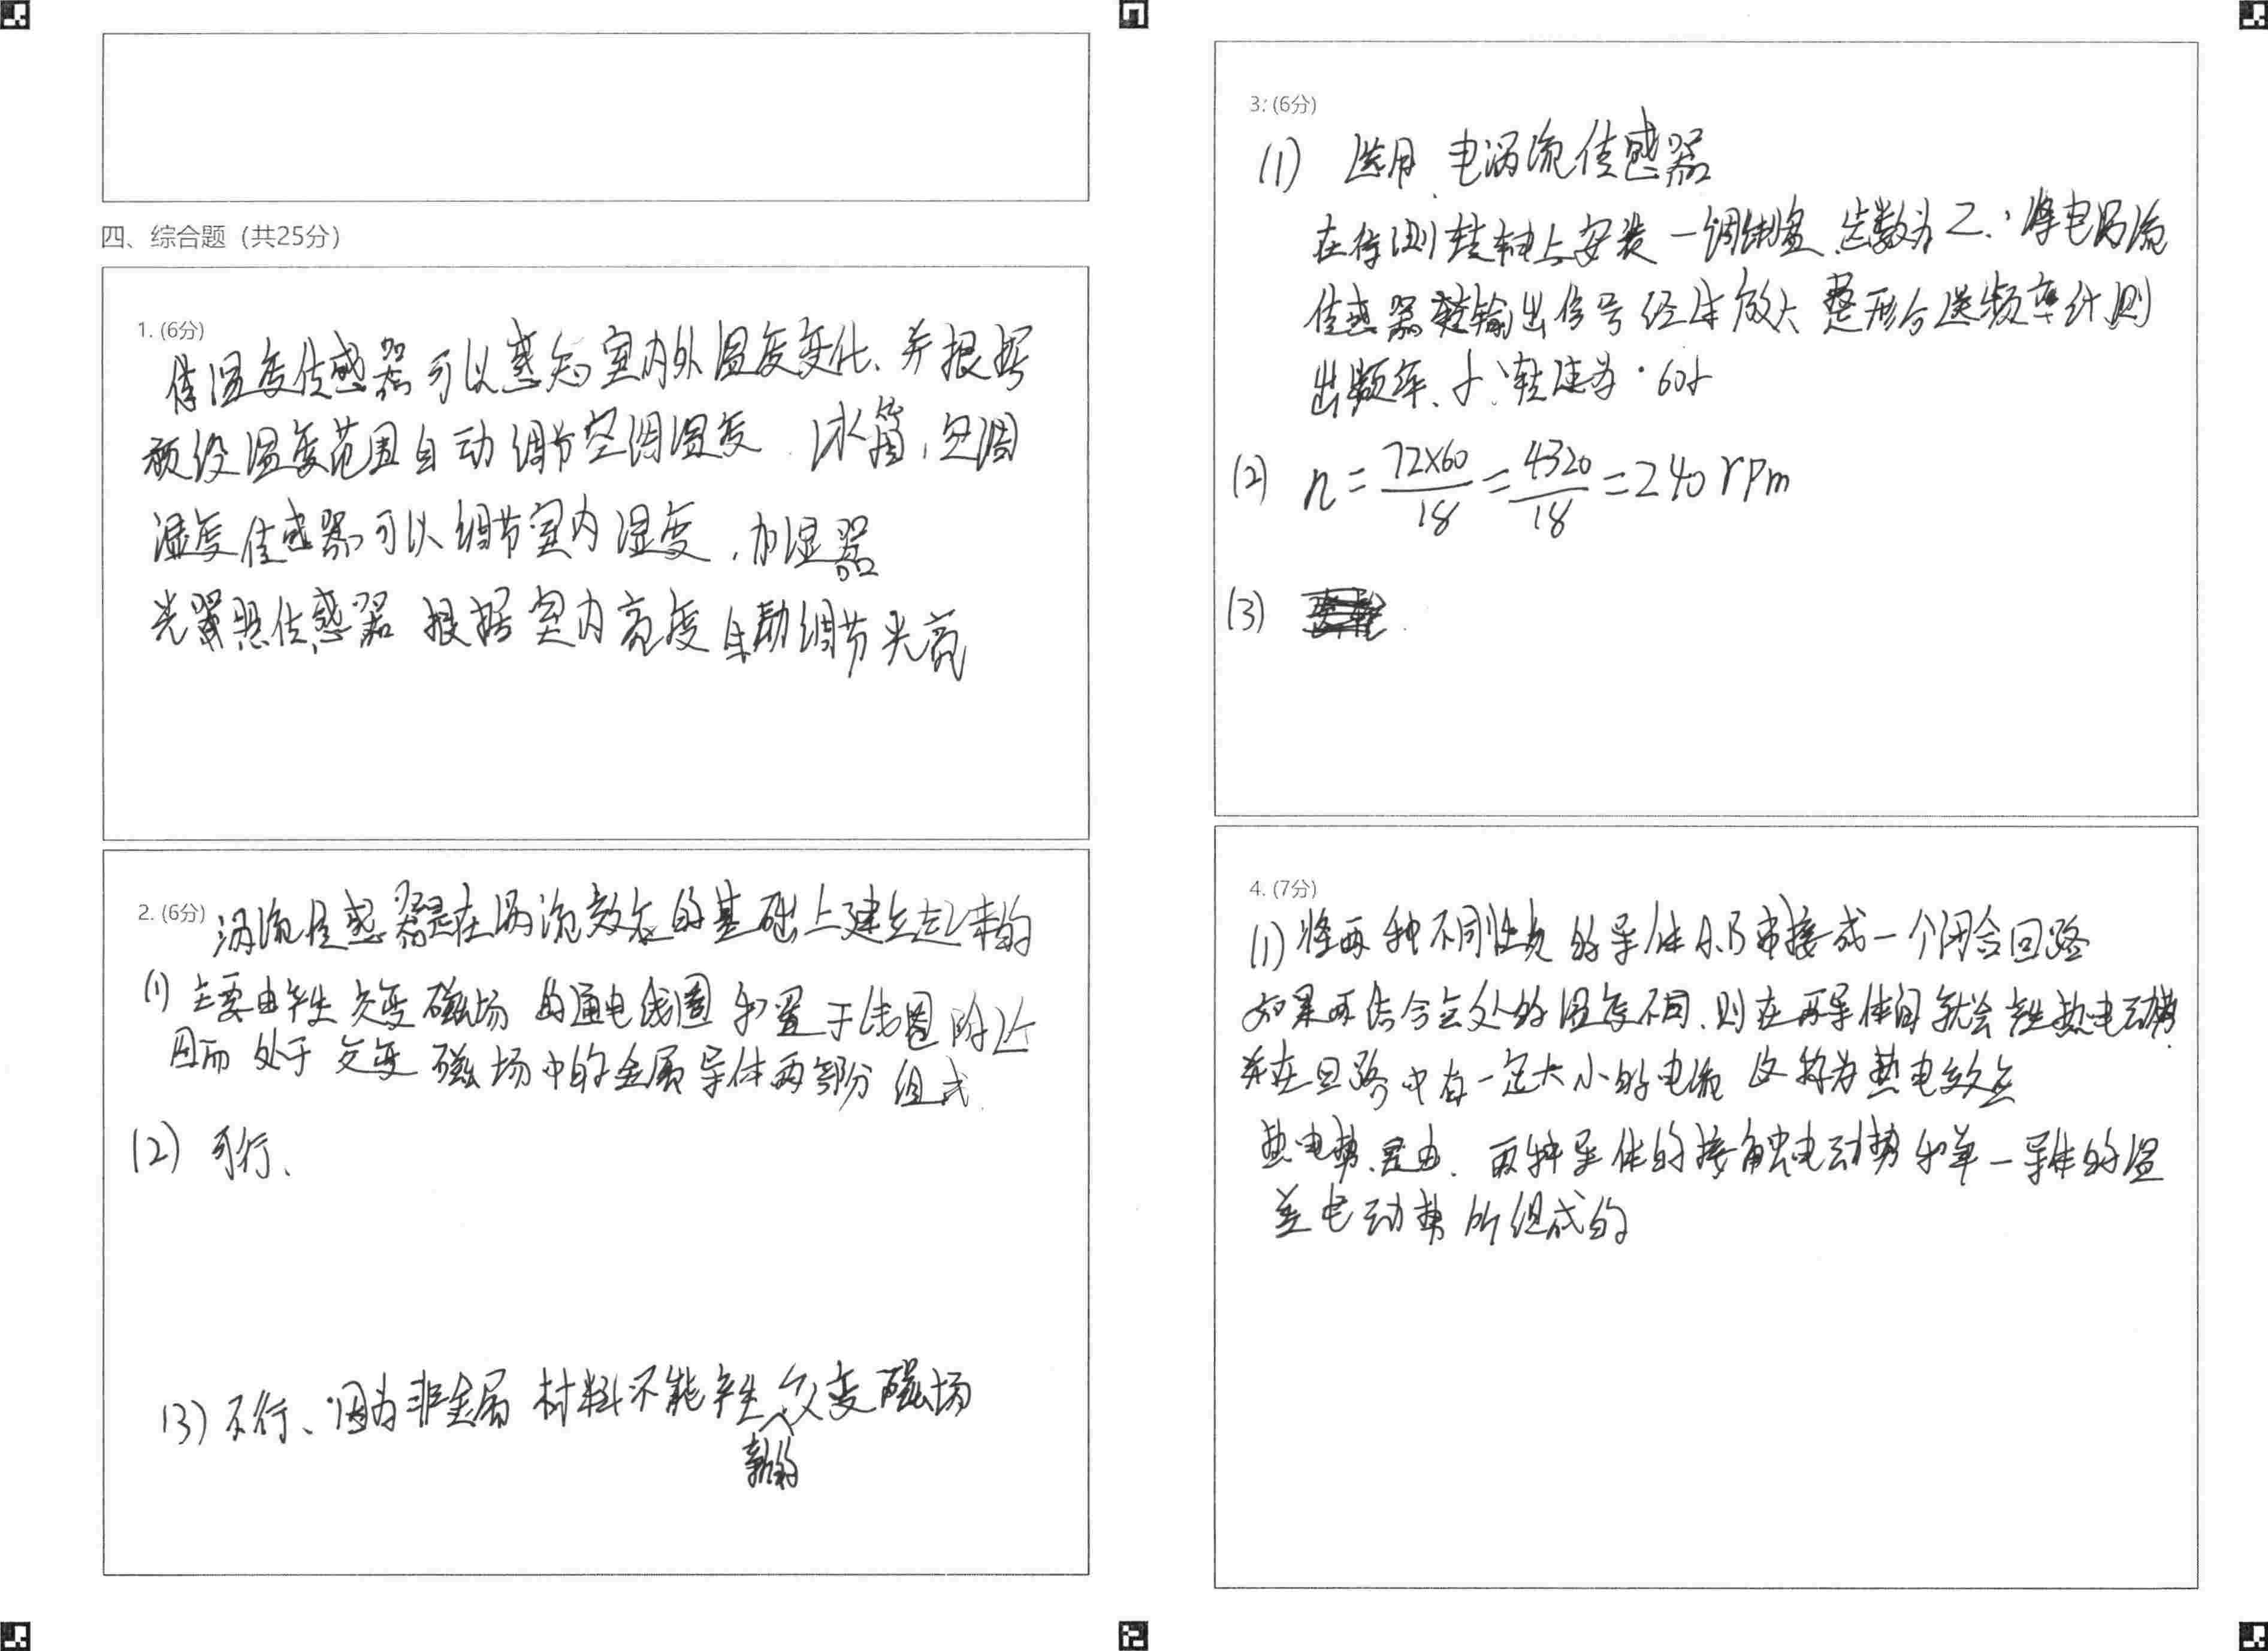 四、综合题（共25分）
1. (6分)
温度传感器可以感知室内外温度变化、并根据
预设温度范围自动调节空调温度 冰箱，空调
湿度传感器可以调节室内湿度，加湿器
光照传感器 根据室内亮度自动调节光亮
2. (6分) 涡流传感器是在涡流效应的基础上建立起来的
(1) 主要由产生交变磁场的通电线圈和置于线圈附近
因而处于交变磁场中的金属导体两部分组成.
(2) 可行、
(3) 不行、因为非金属材料不能产生新的交变磁场
3: (6分)
(1) 选用 电涡流传感器
在待测转轴上安装一调制盘、齿数为Z，将电涡流
传感器输出信号经 放大 整形后送频率计测
出频率、f、转速为 60f
(2) n = 72×60/18 = 4320/18 = 240 rpm
(3)
4. (7分)
(1) 将两种不同性质的导体A.B串接成一个闭合回路
如果两结合点处的温度不同、则在两导体间就会产生热电动势
并在回路中有一定大小的电流 这称为热电效应
热电势、是由、两种导体的接触电动势和单一导体的温
差电动势所组成的